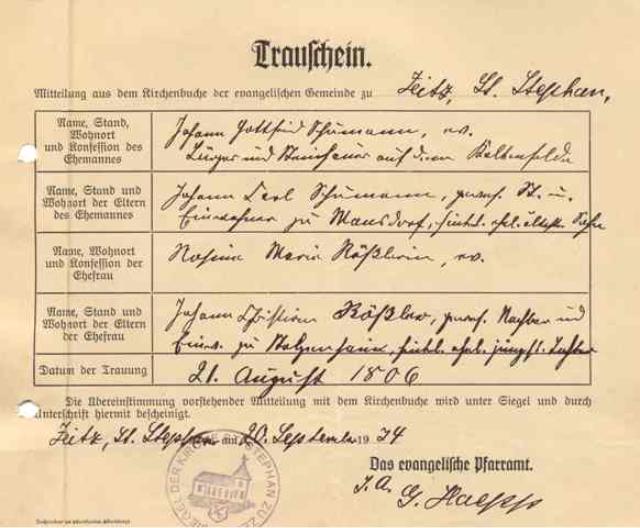 Trauschein.
Mitteilung aus dem Kirchenbuche der evangelischen Gemeinde zu Zeitz, St. Stephan,
Name, Stand,
Wohnort
und Konfession des
Ehemannes
Johann Gottfried Schumann, ev.
Bürger und Steinhauer auf dem Kaltenfelde
Name, Stand und
Wohnort der Eltern
des Ehemannes
Johann Carl Schumann,
Einwohner zu Mansdorf, Sohn
Name, Wohnort
und Konfession der
Ehefrau
Rosine Marie Rößlerin, ev.
Name, Stand und
Wohnort der Eltern
der Ehefrau
Johann Christian Rößler, Nachbar und
Einw. zu Stolzenhain, Tochter
Datum der Trauung
21. August 1806
Die Übereinstimmung vorstehender Mitteilung mit dem Kirchenbuche wird unter Siegel und durch
Unterschrift hiermit bescheinigt.
Zeitz, St. Stephan am 20. September 1934
Das evangelische Pfarramt.
I. A.